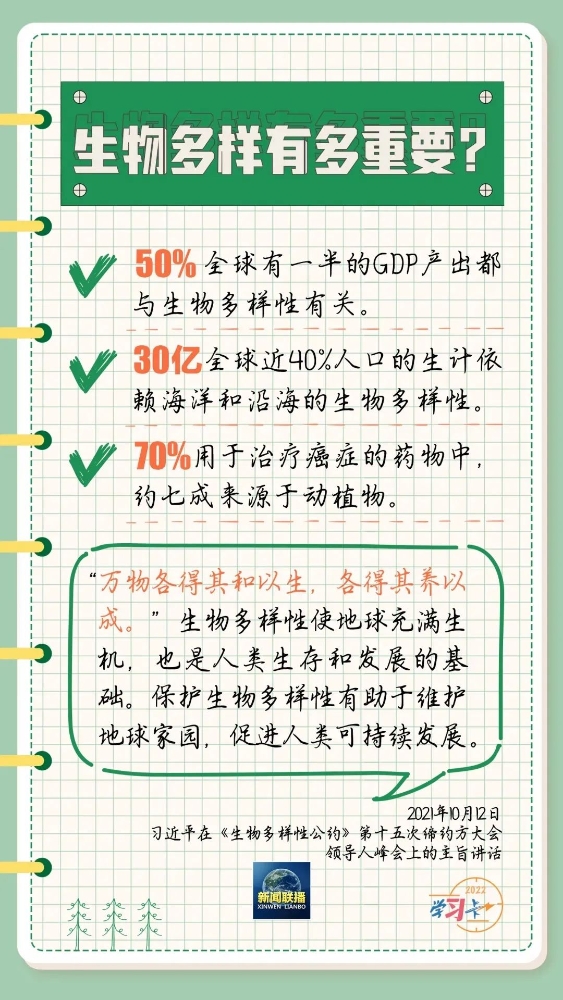 生物多样有多重要?
50% 全球有一半的GDP产出都
与生物多样性有关。
30亿全球近40%人口的生计依
赖海洋和沿海的生物多样性。
70%用于治疗癌症的药物中,
约七成来源于动植物。
“万物各得其和以生,各得其养以
成。”生物多样性使地球充满生
机,也是人类生存和发展的基
础。保护生物多样性有助于维护
地球家园,促进人类可持续发展。
2021年10月12日
习近平在《生物多样性公约》第十五次缔约方大会
领导人峰会上的主旨讲话
新闻联播
XINWEN LIANBO
2022
学习卡